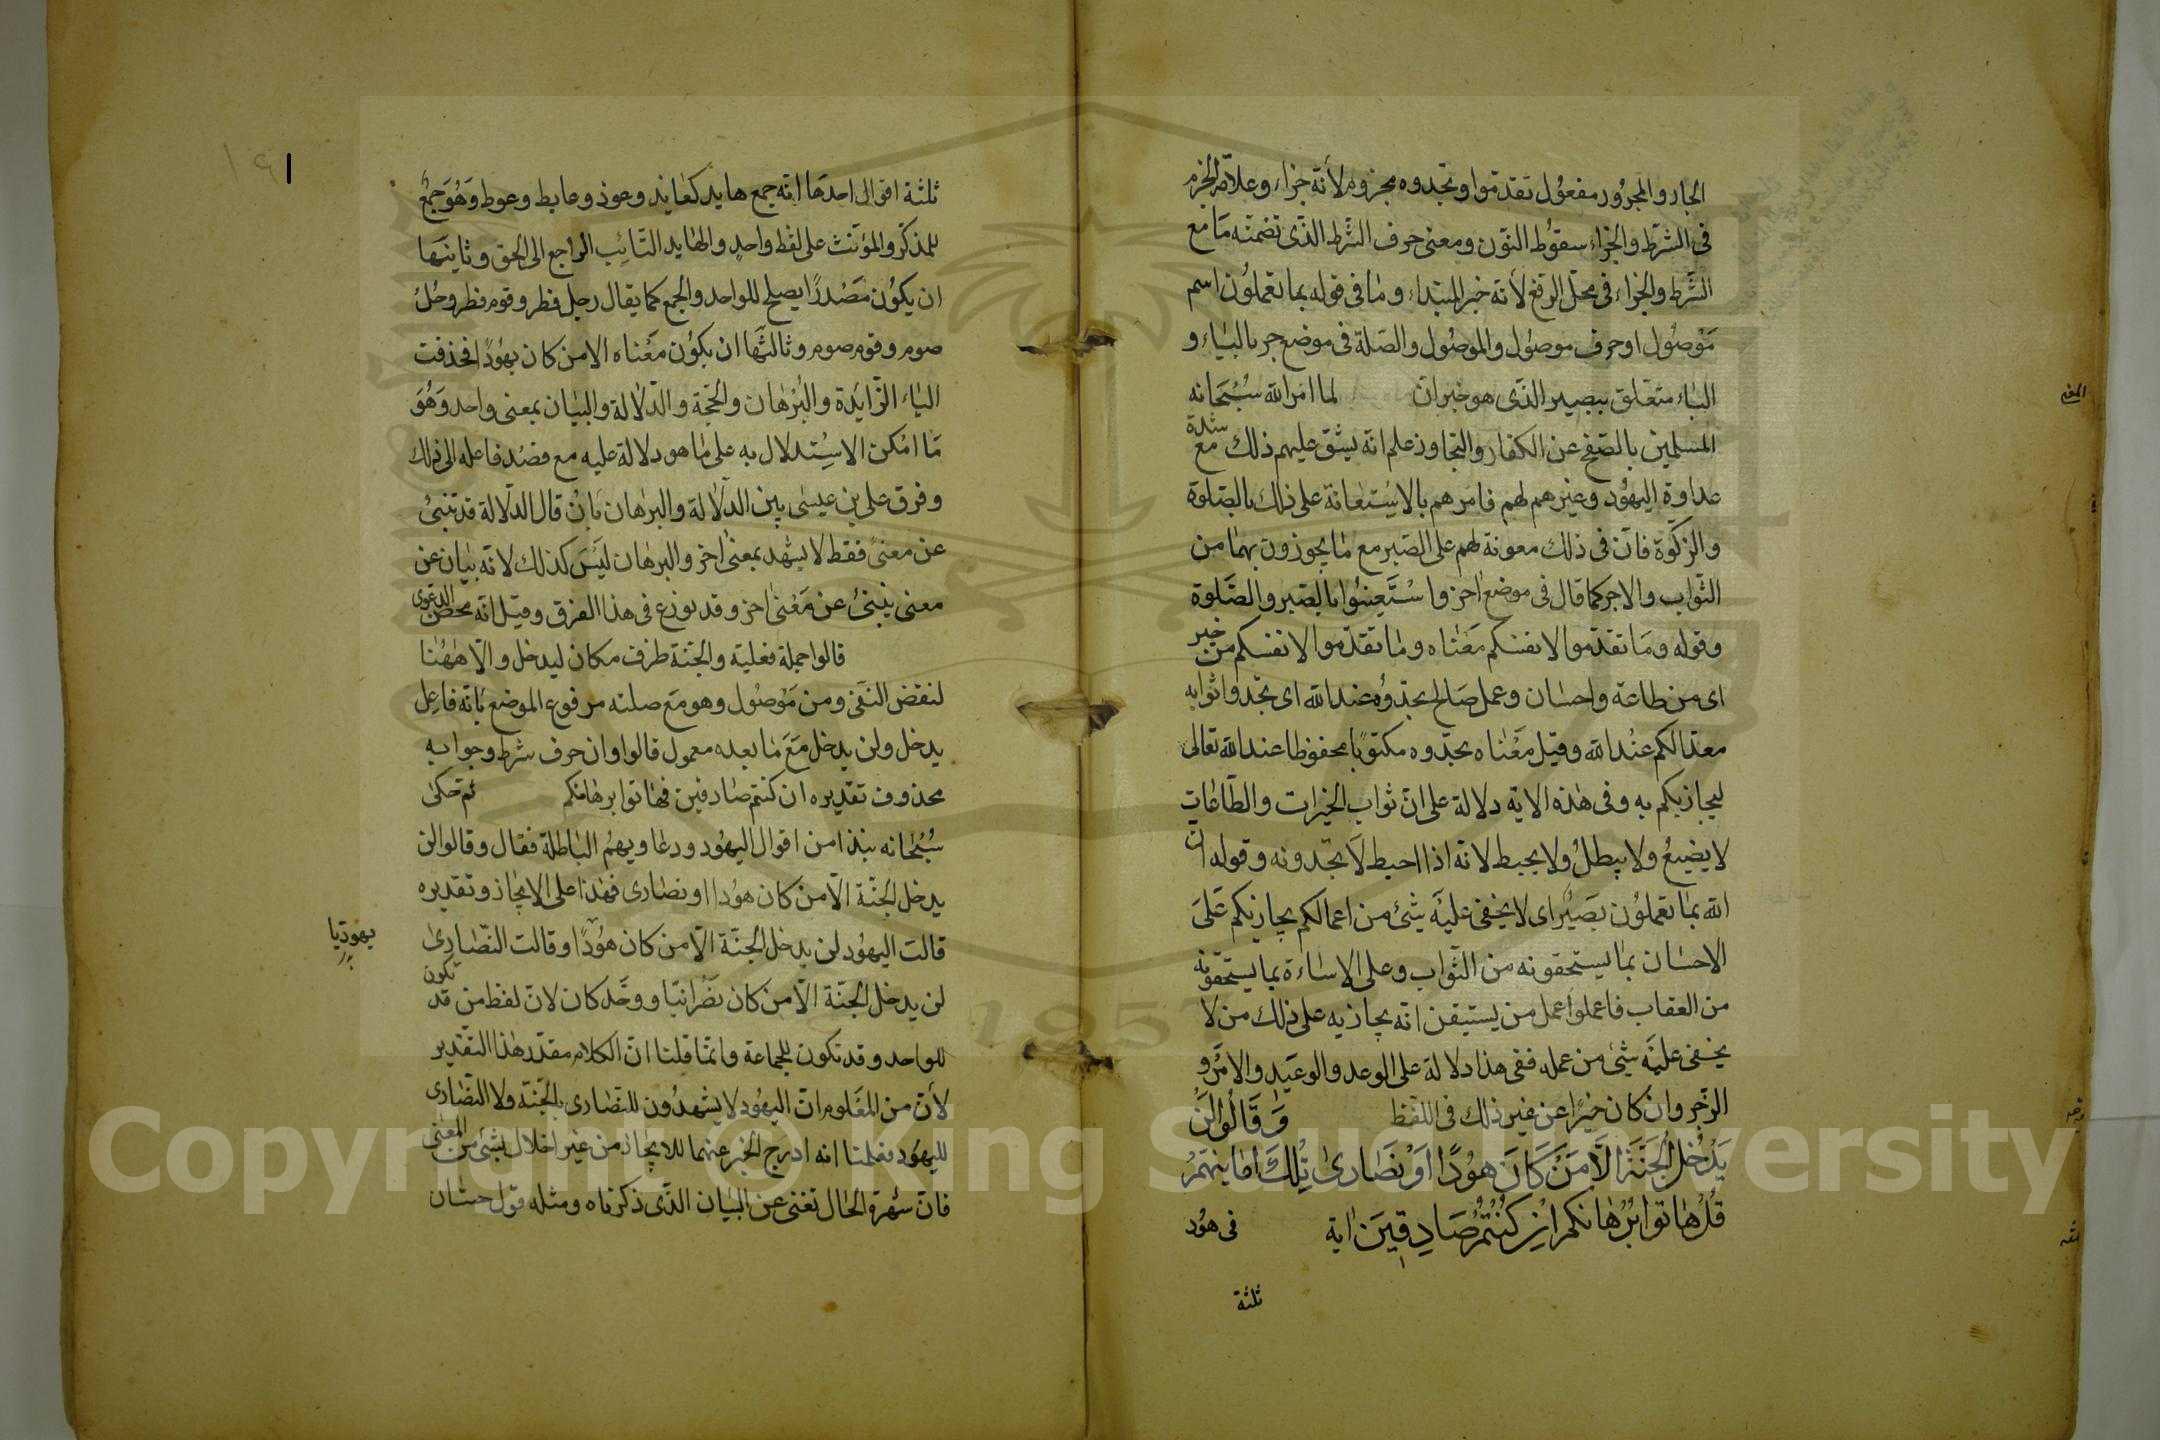 الجار والمجرور مفعول تقدموا وتجدوه مجزوم لأنه جزاء وعلامة الجزم
في الشرط والجزاء سقوط النون ومعنى حرف الشرط الذي تضمنه ما مع
الشرط والجزاء في محل الرفع لأنه خبر المبتداء وما في قوله بما تعملون اسم
موصول او حرف موصول والموصول والصلة في موضع جر بالباء و
الباء متعلق ببصير الذي هو خبر ان لما امر الله سبحانه
المسلمين بالصفح عن الكفار والتجاوز علم انه يشق عليهم ذلك مع شدة
عداوة اليهود وغيرهم لهم فامرهم بالاستعانة على ذلك بالصلوة
والزكوة فان في ذلك معونة لهم على الصبر مع ما يجوزون بهما من
الثواب والاجر كما قال في موضع اخر واستعينوا بالصبر والصلوة
وقوله وما تقدموا لانفسكم معناه وما تقدموا لانفسكم من خير
اى من طاعة واحسان وعمل صالح تجدوه عند الله اى تجدوا ثوابه
معدا لكم عند الله وقيل معناه تجدوه مكتوبا محفوظا عند الله تعالى
ليجازيكم به وفي هذه الاية دلالة على ان ثواب الخيرات والطاعات
لا يضيع ولا يبطل ولا يحبط لانه اذا احبط لا تجدونه وقوله ان
الله بما تعملون بصير اى لا يخفى عليه شيئ من اعمالكم يجازيكم على
الاحسان بما يستحقونه من الثواب وعلى الاساءة بما يستحقونه
من العقاب فاعملوا عمل من يستيقن انه يجازيه على ذلك من لا
يخفى عليه شيئ من عمله ففي هذا دلالة على الوعد والوعيد والامر و
الزجر وان كان خبرا عن غير ذلك في اللفظ وَقَالُوا لَنْ
يَدْخُلَ الْجَنَّةَ اِلَّا مَنْ كَانَ هُودًا اَوْ نَصَارىٰ تِلْكَ امَانِيُّهُمْ
قُلْ هَاتُوا بُرْهَانَكُمْ اِنْ كُنْتُمْ صَادِقِينَ اية في هود
ثلثة
ثلثة اقوال احدها انه جمع هايد كعايد وعوذ وعايط وعوط وهو جمع
للمذكر والمؤنث على لفظ واحد والهايد التائب الراجع الى الحق وثانيها
ان يكون مصدرا يصلح للواحد والجمع كما يقال رجل فطر وقوم فطر ورجل
صوم وقوم صوم وثالثها ان يكون معناه الا من كان يهودا فحذفت
الياء الزايدة والبرهان والحجة والدلالة والبيان بمعنى واحد وهو
ما امكن الاستدلال به على ما هو دلالة عليه مع قصد فاعله الى ذلك
وفرق علي بن عيسى بين الدلالة والبرهان بان قال الدلالة قد تنبئ
عن معنى فقط لا يشهد بمعنى اخر والبرهان ليس كذلك لانه بيان عن
معنى ينبئ عن معنى اخر وقد نوزع في هذا الفرق وقيل انه محض الدعوى
قالوا جملة فعلية والجنة ظرف مكان ليدخل والا ههنا
لنقض النفى ومن موصول وهو مع صلته مرفوع الموضع بانه فاعل
يدخل ولن يدخل مع ما بعده معمول قالوا وان حرف شرط وجوابه
محذوف تقديره ان كنتم صادقين فهاتوا برهانكم ثم حكى
سبحانه نبذا من اقوال اليهود ودعاويهم الباطلة فقال وقالوا لن
يدخل الجنة الا من كان هودا او نصارى فهذا على الايجاز وتقديره
قالت اليهود لن يدخل الجنة الا من كان هودا وقالت النصارى
يهوديا
لن يدخل الجنة الا من كان نصرانيا ووحد كان لان لفظ من قد تكون
للواحد وقد تكون للجماعة وانما قلنا ان الكلام مقدر هذا التقدير
لأن من المعلوم ان اليهود لا يشهدون للنصارى بالجنة ولا النصارى
لليهود فعلمنا انه ادرج الخبر عنهما للايجاز من غير اخلال بشيئ من المعنى
فان شهرة الحال تغنى عن البيان الذي ذكرناه ومثله قول حسان
Copyright © King Saud University
1957